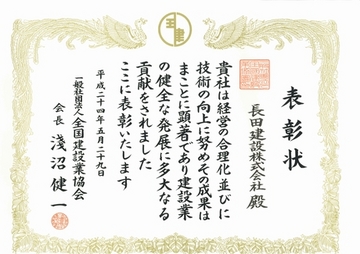 表彰状
長田建設株式会社 殿
貴社は経営の合理化並びに
技術の向上に努めその成果は
まことに顕著であり建設業
の健全な発展に多大なる
貢献をされました
ここに表彰いたします
平成二十四年五月二十九日
一般社団法人全国建設業協会
会長 淺沼健一